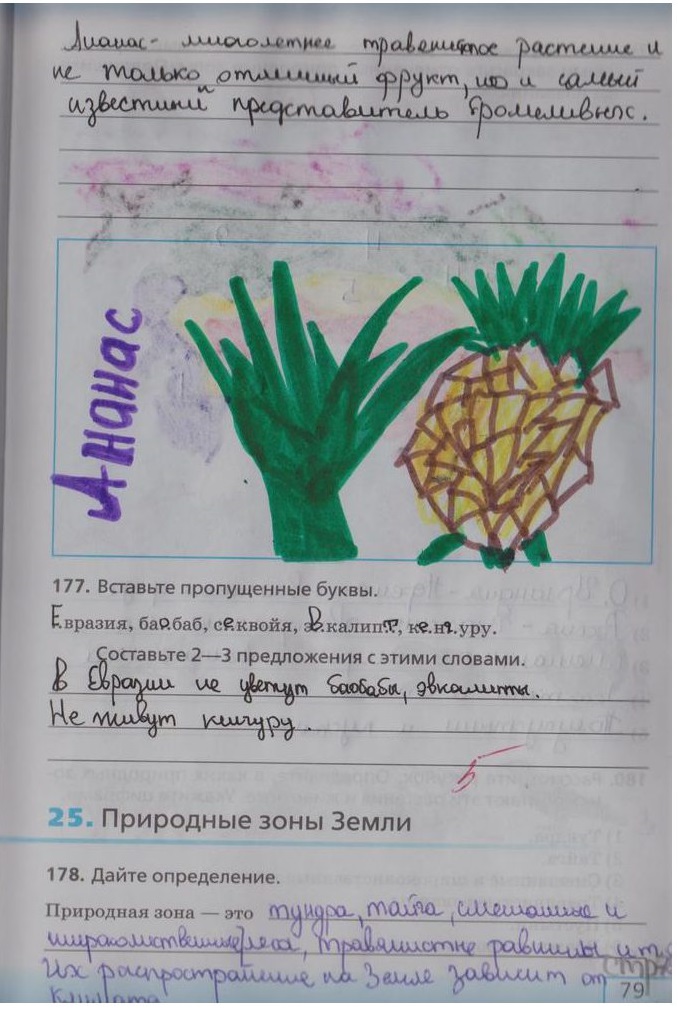 Ананас - многолетнее травянистое растение и
не только отличный фрукт, но и самый
известный представитель бромеливых.
Ананас
177. Вставьте пропущенные буквы.
Евразия, баобаб, секвойя, эвкалипт, кенгуру.
Составьте 2—3 предложения с этими словами.
В Евразии не цветут баобабы, эвкалипты.
Не живут кингуру.
5
25. Природные зоны Земли
178. Дайте определение.
Природная зона — это тундра, тайга, смешанные и
широколиственные леса, травянистые равнины и т.
Их распространение на Земле зависит от
климата
79